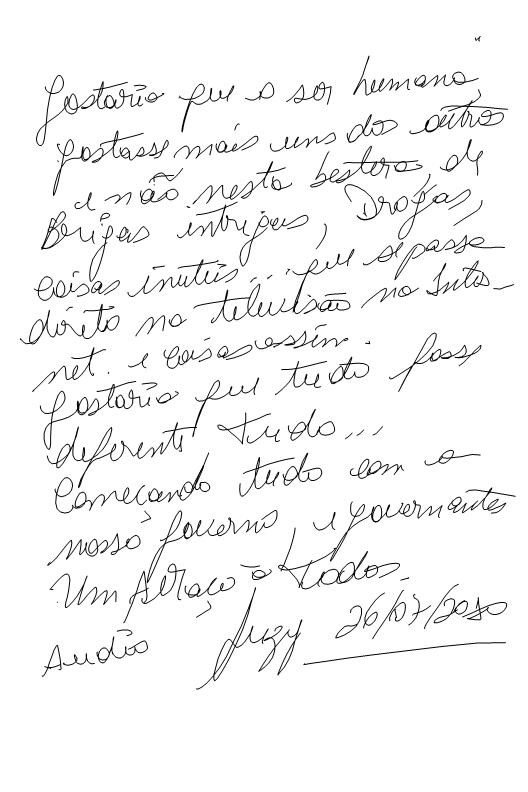 Gostaria que o ser humano,
gostasse mais uns do outro
e não nesta bestera, de
Brigas intrigas, Drogas,
coisas inuteis... que se passa
direto na televisão na Inter-
net. e coisas assim.
Gostaria que tudo fosse
diferente tudo...
Começando tudo com o
nosso governo, e governantes
Um Abraço a todos.
26/07/2010